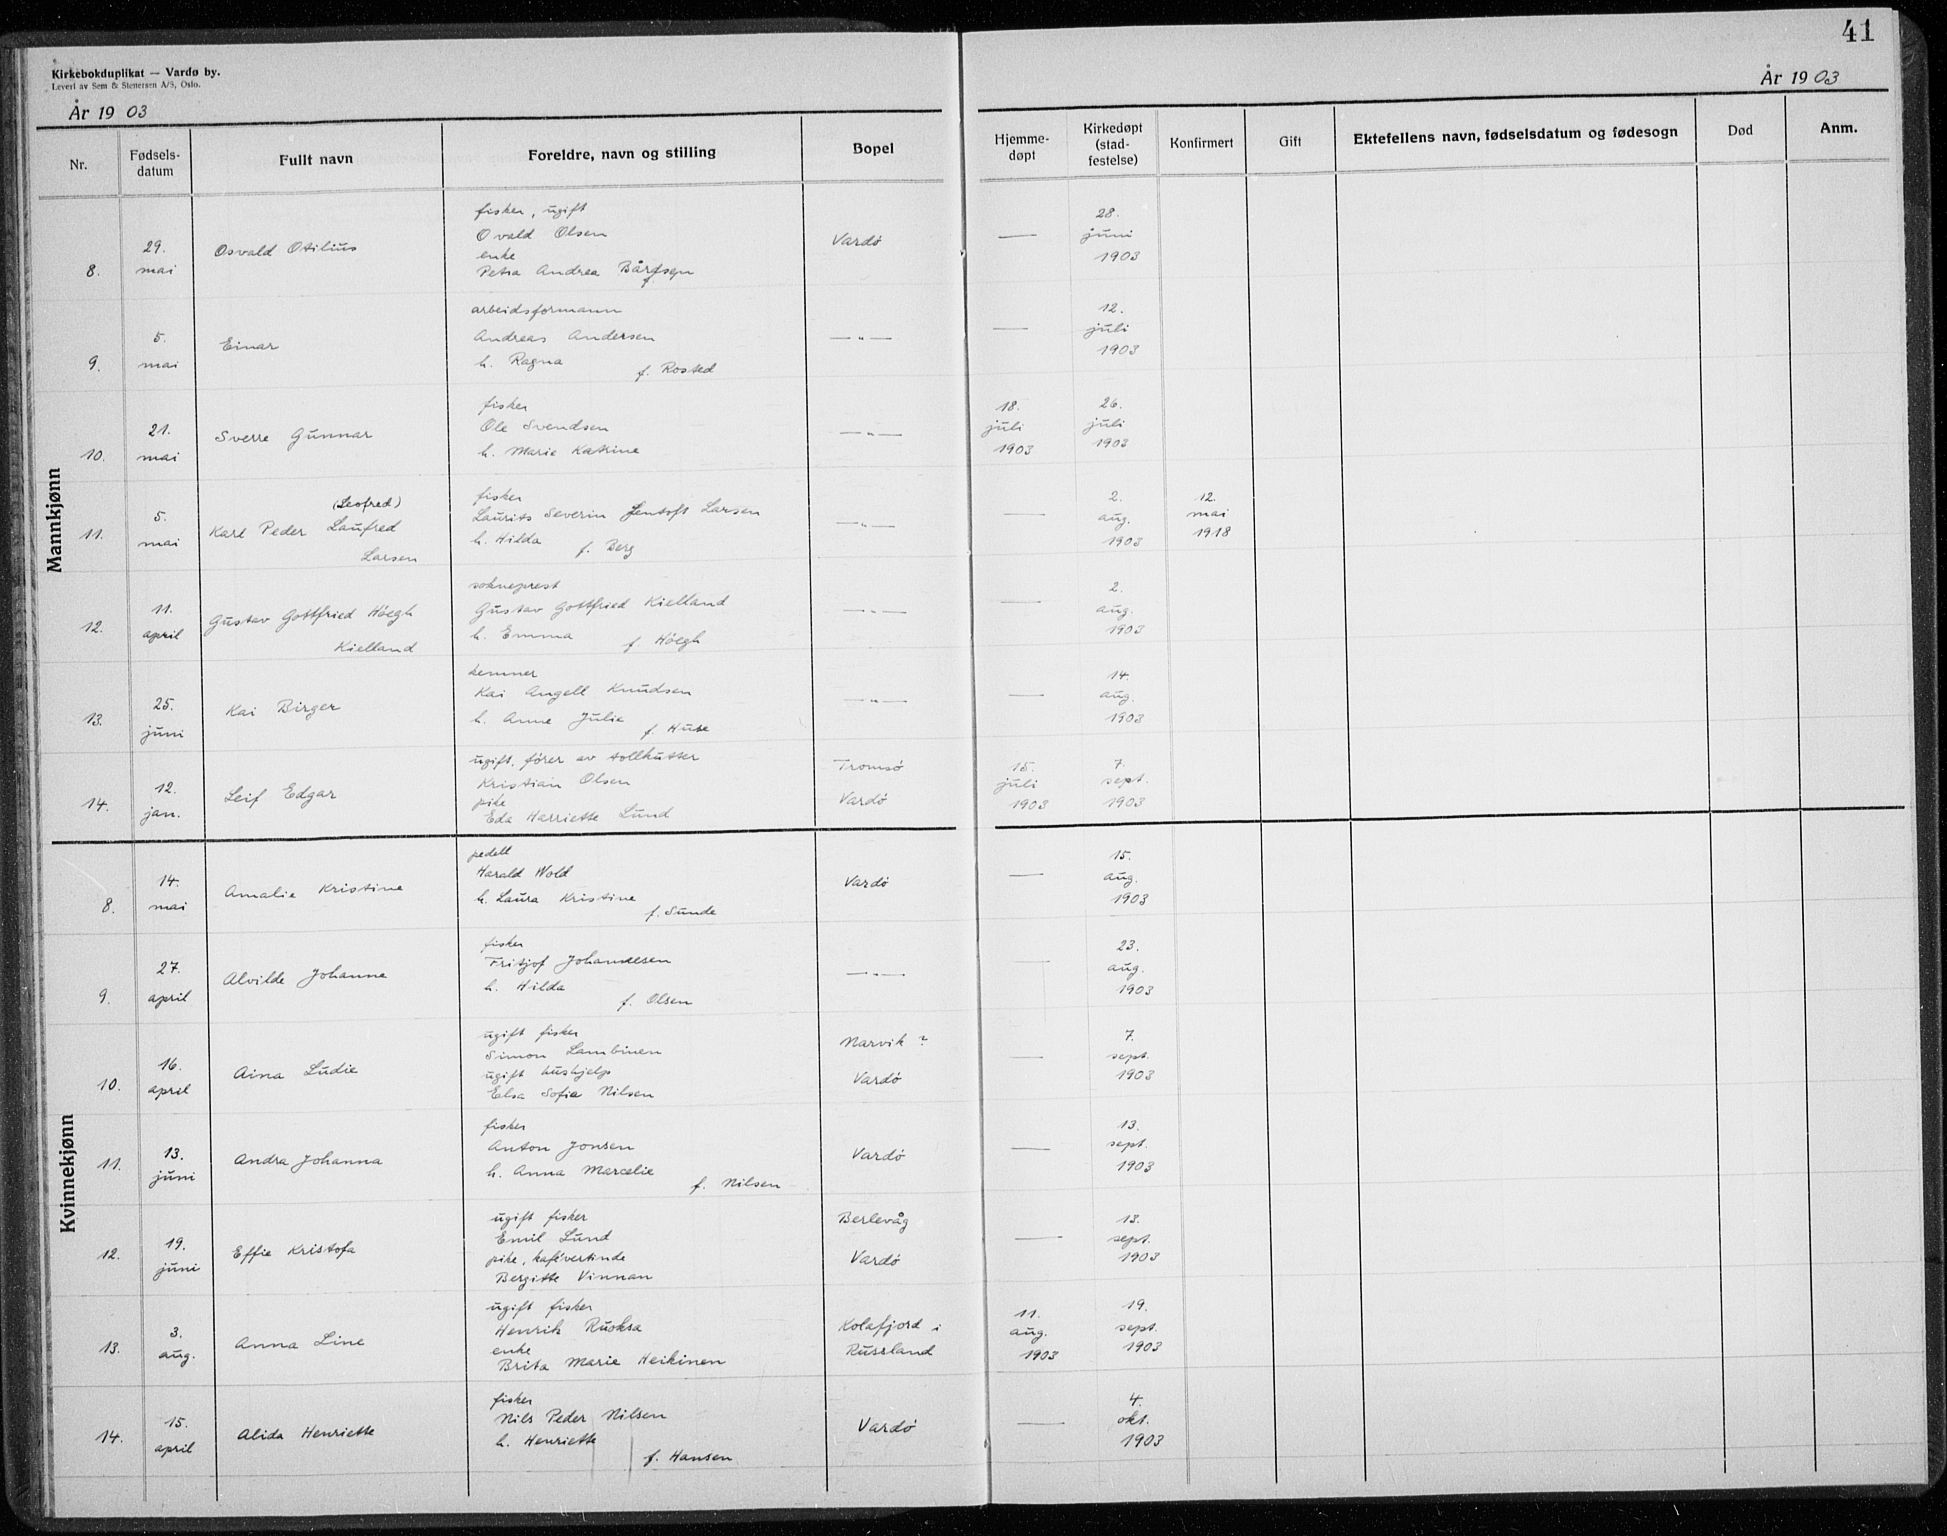 41
Kirkebokduplikat — Vardø by.
Levert av Sem & Stenersen A/S, Oslo.
År 1903
År 1903
Nr. Fødselsdatum Fullt navn Foreldre, navn og stilling Bopel Hjemmedøpt Kirkedøpt (stadfestelse) Konfirmert Gift Ektefellens navn, fødselsdatum og fødesogn Død Anm.
Mannkjønn
fisker, ugift 28.
29. Osvald Otilius Ovald Olsen Vardö — juni
8. mai enke 1903
Petra Andrea Bårtsen
arbeidsformann 12.
5. Einar Andreas Andersen —"— — juli
9. mai h. Ragna f. Rosted 1903
fisker 18. 26.
21. Sverre Gunnar Ole Svendsen —"— juli juli
10. mai h. Marie Katrine 1903 1903
(Leofred) fisker 2. 12.
5. Karl Peder Laufred Laurits Severin Jentoft Larsen —"— — aug. mai
11. mai Larsen h. Hilda f. Berg 1903 1918
sokneprest 2.
11. Gustav Gottfried Höegh Gustav Gottfried Kielland —"— — aug.
12. april Kielland h. Emma f Höegh 1903
kemner 14.
25. Kai Birger Kai Angell Knudsen —"— — aug.
13. juni h. Anne Julie f. Huse 1903
ugift. förer av tollkutter Tromsö 15. 7.
12. Leif Edgar Kristian Olsen juli sept.
14. jan. pike Vardö 1903 1903
Eda Harriette Lund
Kvinnekjønn
pedell 15.
14. Amalie Kristine Harald Wold Vardö — aug.
8. mai h. Laura Kristine f. Sunde 1903
fisker 23.
27. Alvilde Johanne Fritjof Johannesen —"— — aug.
9. april h. Hilda f. Olsen 1903
ugift fisker 7.
16. Aina Ludie Simon Lambinen Narvik ? — sept.
10. april ugift hushjelp Vardö 1903
Elsa Sofie Nilsen
fisker 13.
13. Andra Johanna Anton Jonsen Vardö — sept.
11. juni h. Anna Marcelie 1903
f. Nilsen
ugift fisker Berlevåg 13.
19. Effie Kristofa Emil Lund — sept.
12. juni pike, kafévertinde Vardö 1903
Bergitte Vinnan
ugift fisker 11. 19.
3. Anna Line Henrik Ruoksa Kolafjord i aug. sept.
13. aug. enke Russland 1903 1903
Brita Marie Heikinen
fisker 4.
15. Alida Henriette Nils Peder Nilsen Vardö — okt.
14. april h. Henriette 1903
f. Hansen